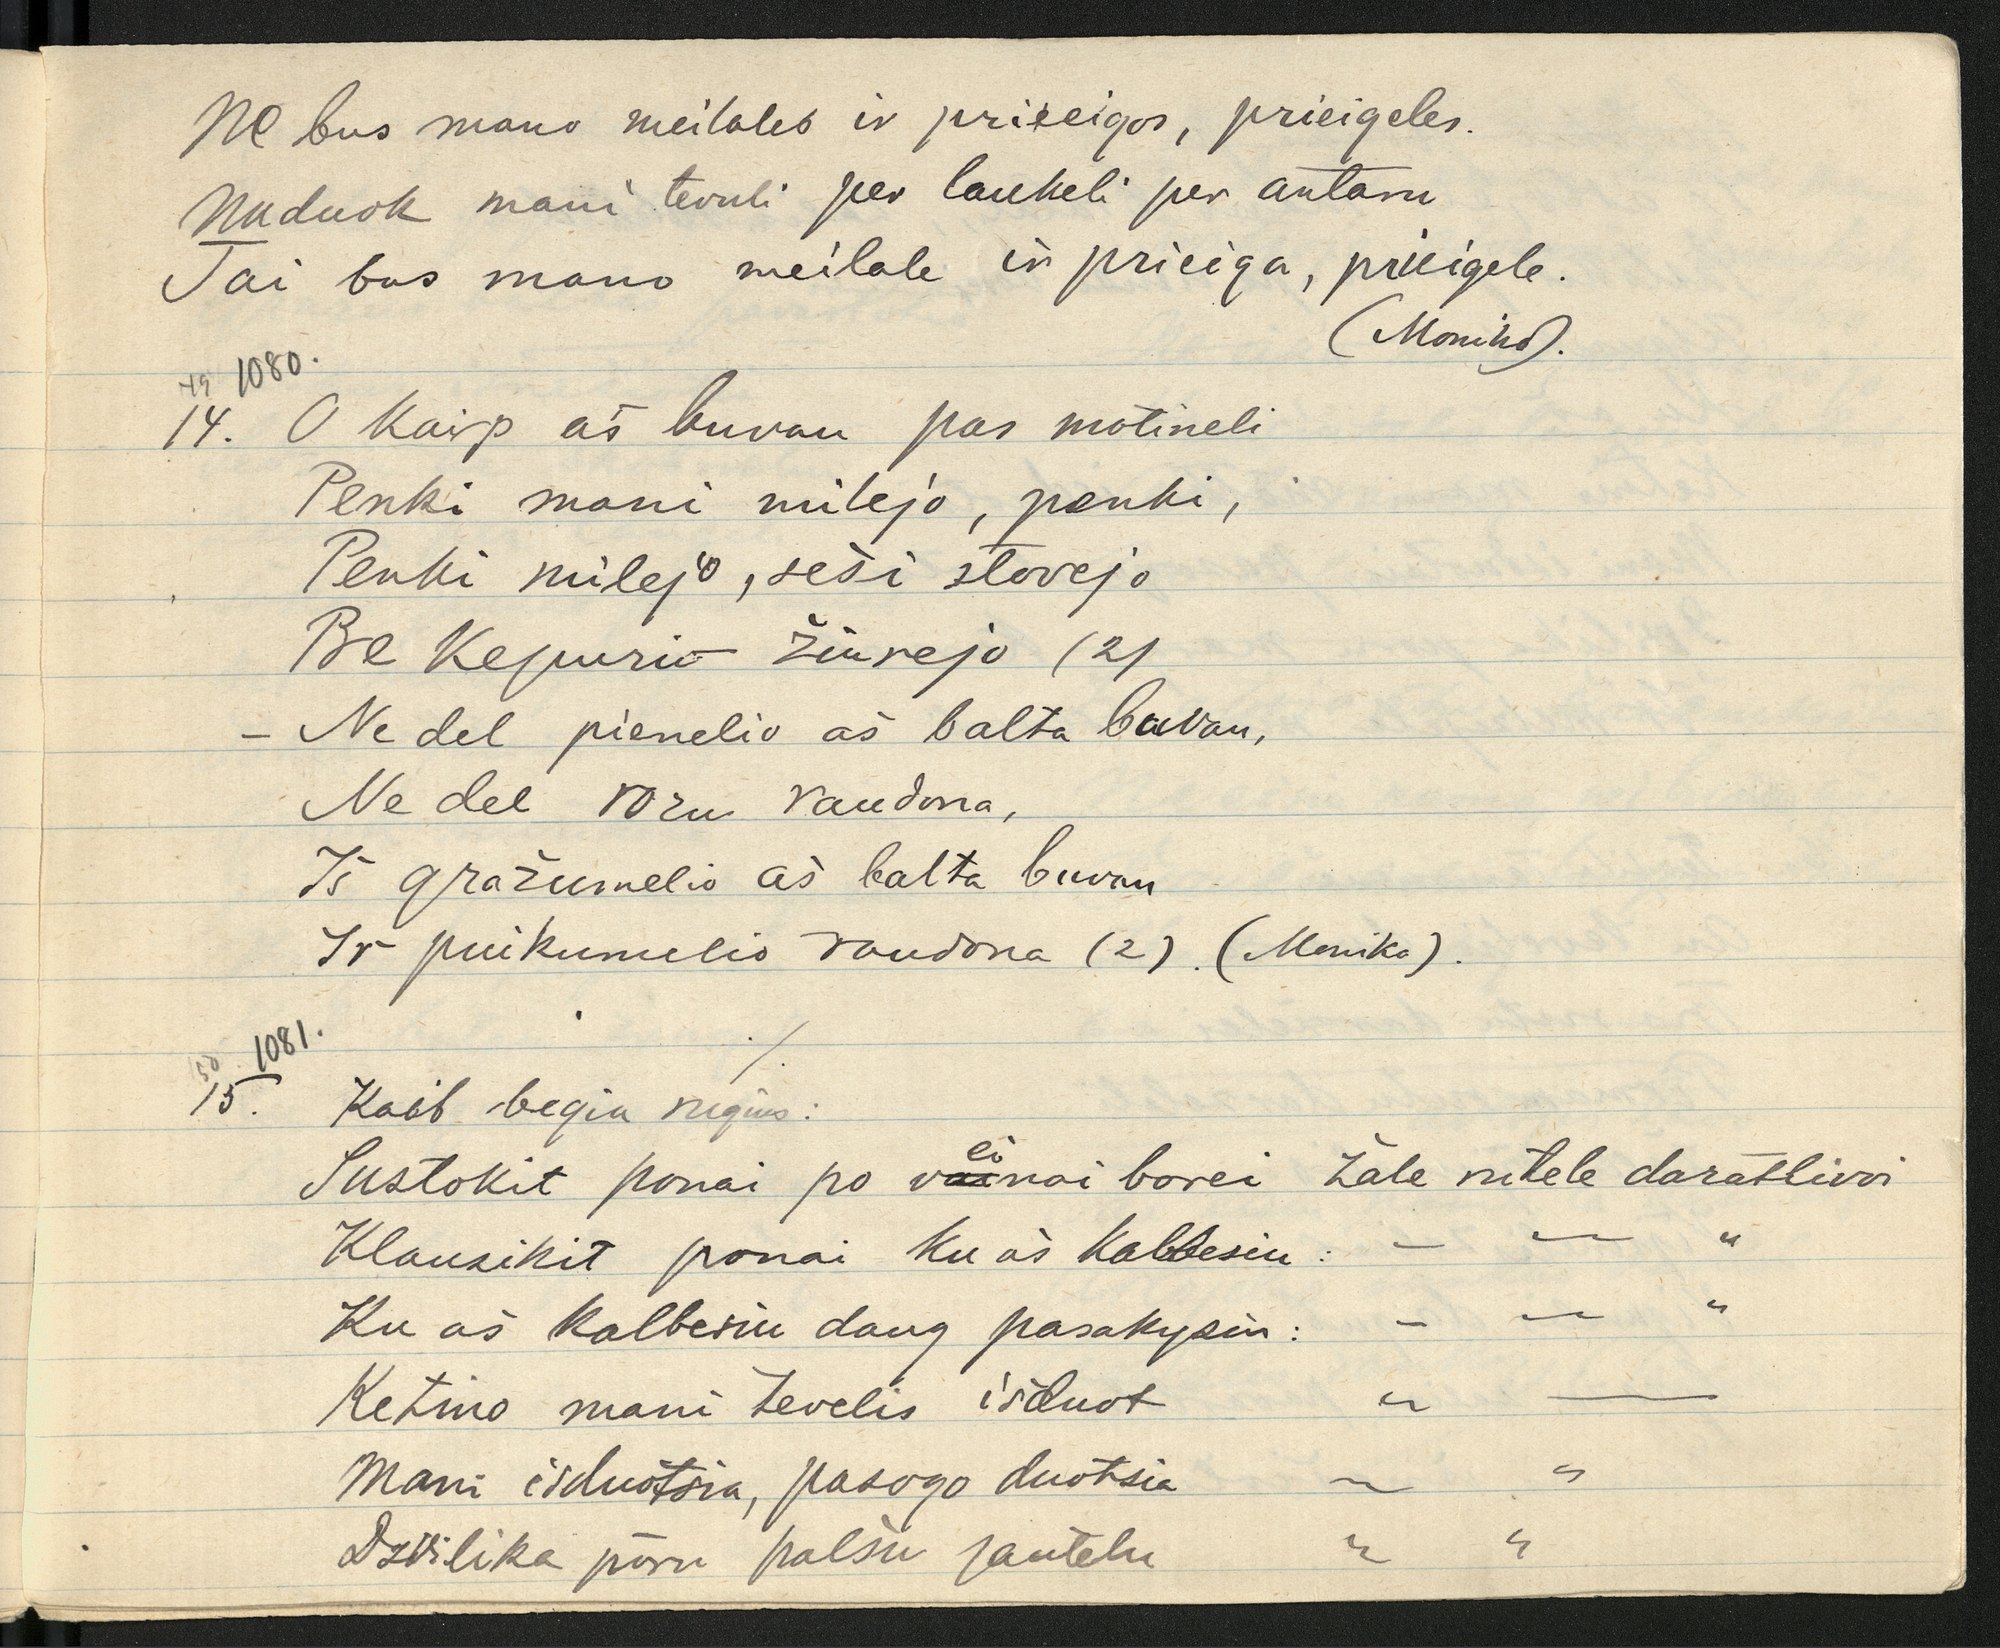 Ne bus mano meilales ir prieeigos, prieigeles.
Naduok mani tevuli per laukeli per antaru
Tai bus mano meilale ir prieiga, prieigele.
(Monika).
49 1080.
14. O kaip aš buvau pas motineli
Penki mani milejo, penki,
Penki milejo, šeši stovejo
Be kepurio žiurejo (2)
- Ne del pienelio aš balta buvau,
Ne del rozu raudona,
Iš gražumelio aš balta buvau
Ir puikumelio raudona (2). (Monika).
50 1081.
15. Kaib begia rugius:
Sustokit ponai po vei̇nai barei žale rutele daratlivoi
Klausikit ponai ku aš kalbesiu: — — "
Ku aš kalbesiu daug pasakysiu: — — "
Ketino mani tevelis išduot " —
Mani išduotsia, pasogo duotsia " "
Dzvilika poru palšu jautelu " "